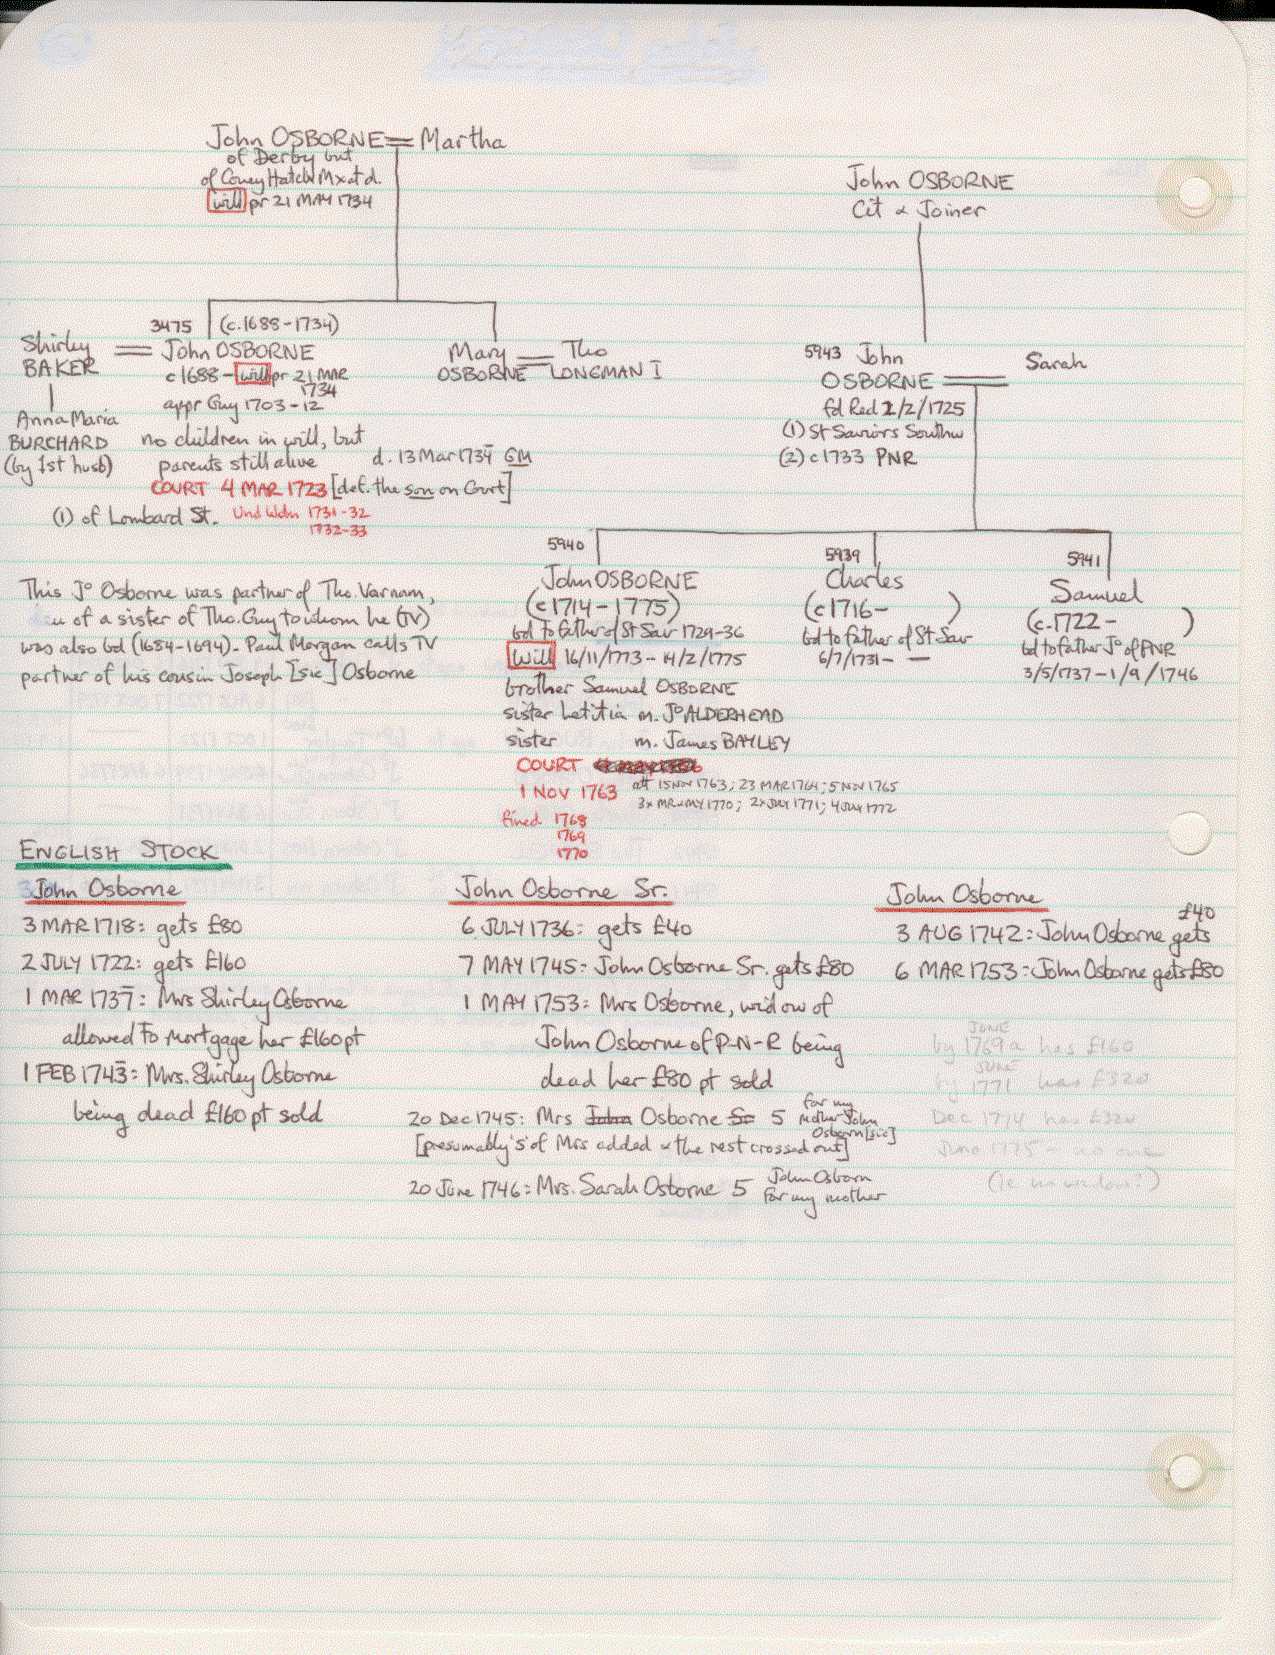 John OSBORNE = Martha
of Derby but
of Coney Hatch Mx at d.
will pr 21 MAY 1734
John OSBORNE
Cit & Joiner
3475 (c.1688-1734)
Shirley BAKER = John OSBORNE
c 1688 - will pr 21 MAR 1734
appr Guy 1703-12
Anna Maria
BURCHARD
(by 1st husb)
no children in will, but
parents still alive
d. 13 Mar 1734 GM
COURT 4 MAR 1723 [def. the son on Court]
(1) of Lombard St.
Und Wdn 1731-32
1732-33
Mary OSBORNE = Tho LONGMAN I
5943 John
OSBORNE = Sarah
fd Red 2/2/1725
(1) St Saviors Southw
(2) c1733 PNR
5940
John OSBORNE
(c1714-1775)
bd to father of St Sav 1729-36
Will 16/11/1773-14/2/1775
brother Samuel OSBORNE
sister Letitia m. Jo ALDERHEAD
sister m. James BAYLEY
COURT
1 NOV 1763
att 15 NOV 1763; 23 MAR 1764; 5 NOV 1765
3x MR & MY 1770; 2x JULY 1771; 4 JULY 1772
fined 1768
1769
1770
5939
Charles
(c1716- )
bd to father of St Sav
6/7/1731- —
5941
Samuel
(c.1722- )
bd to father Jo of PNR
3/5/1737-1/9/1746
This Jo Osborne was partner of Tho. Varnam,
of a sister of Tho. Guy to whom he (TV)
was also bd (1684-1694). Paul Morgan calls TV
partner of his cousin Joseph [sic] Osborne
ENGLISH STOCK
John Osborne
3 MAR 1718: gets £80
2 JULY 1722: gets £160
1 MAR 1737: Mrs Shirley Osborne
allowed to mortgage her £160 pt
1 FEB 1743: Mrs. Shirley Osborne
being dead £160 pt sold
John Osborne Sr.
6 JULY 1736: gets £40
7 MAY 1745: John Osborne Sr. gets £80
1 MAY 1753: Mrs Osborne, widow of
John Osborne of P-N-R being
dead her £80 pt sold
20 Dec 1745: Mrs John Osborne Sr 5 for my mother John Osborn [sic]
[presumably 's' of Mrs added & the rest crossed out]
20 June 1746: Mrs. Sarah Osborne 5 John Osborn for my mother
John Osborne
3 AUG 1742: John Osborne gets £40
6 MAR 1753: John Osborne gets £80
by JUNE 1769 a has £160
by JUNE 1771 has £320
Dec 1774 has £320
June 1775 - no one
(ie no widow?)